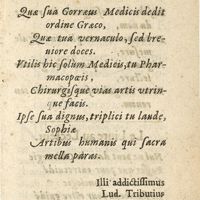 Quæ sua Gorræus Medicis dedit
ordine Græco,
Quæ tua vernaculo, sed bre-
niore doces.
Vtilis hic solum Medicis, tu Phar-
macopœis,
Chirurgisque vias artis vtrin-
que facis.
Ipse sua dignus, triplici tu laude,
Sophiæ
Artibus humanis qui sacra
mella paras.
Illi addictissimus
Lud. Tributius